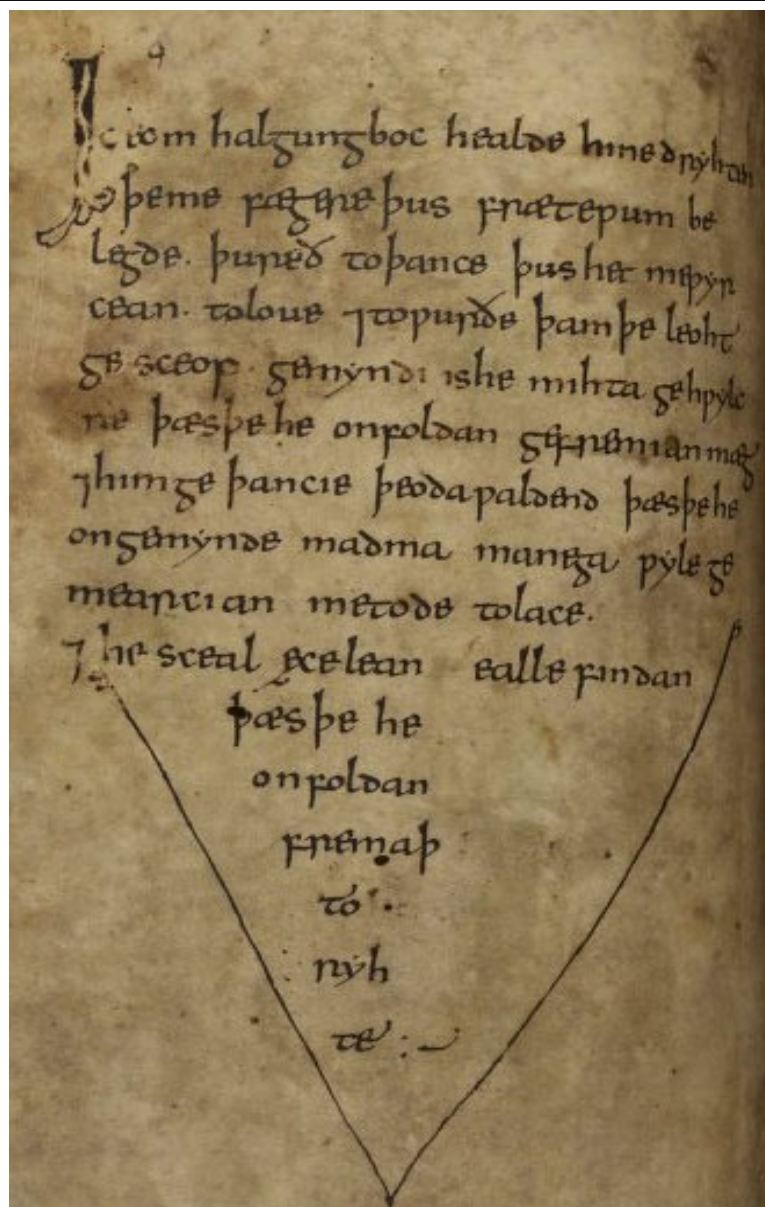 Ic eom halgungboc healde hine dryhten
þeme fægere þus fræteƿum be
legde. þureð toþance þus het meƿyr
cean. toloue ⁊toƿurðe þamþe leoht
gesceop. gemyndi ishe mihta gehƿylc
re þæsþe he onfoldan gefremianmæg
⁊himge þancie þeodaƿaldend þæsþehe
ongemynde madma manega ƿylege
mearcian metode tolace.
⁊he sceal ece lean ealle findan
þæs þe he
onfoldan
fremaþ
to.
ryh
te:-